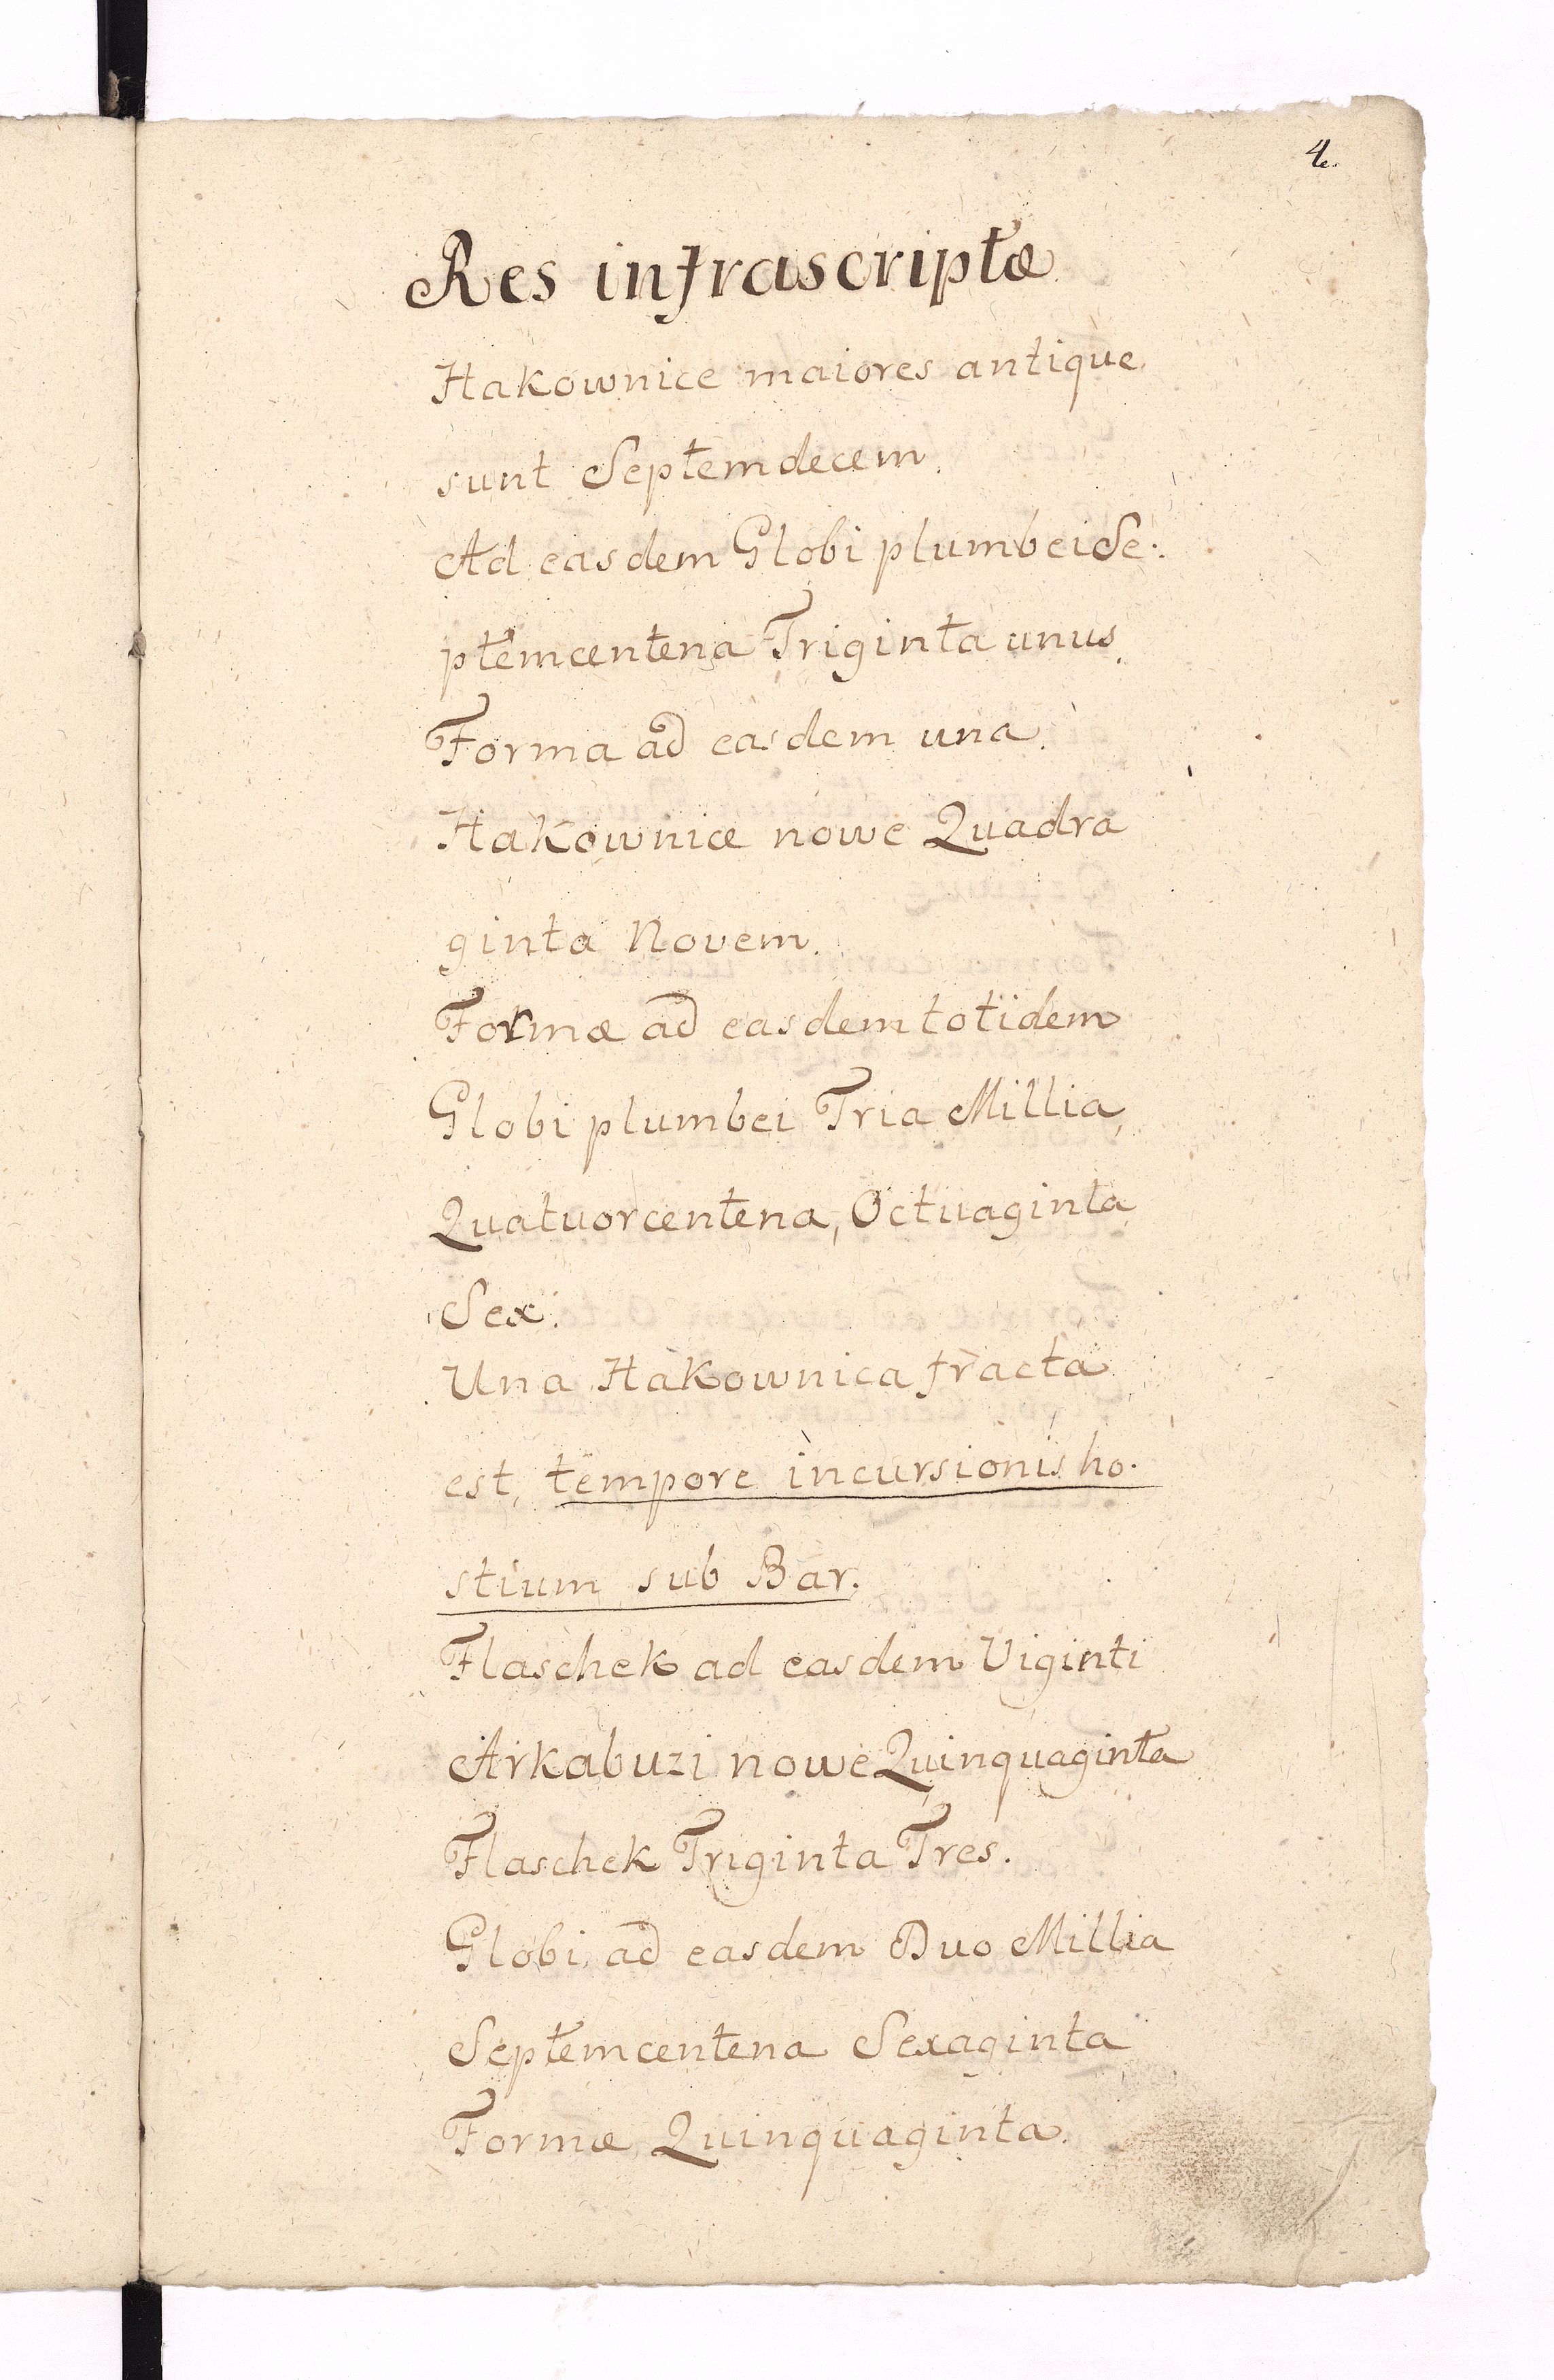 4.
Res infrascriptæ
Hakownice maiores antique
sunt Septemdecem.
Ad easdem Globi plumbei Se:
ptemcentena Triginta unus.
Forma ad easdem una.
Hakownice nowe Quadra
ginta Novem.
Formæ ad easdem totidem
Globi plumbei Tria Millia,
Quatuorcentena, Octuaginta
Sex.
Una Hakownica fracta
est, tempore incursionis ho.
stium sub Bar.
Flaschek ad easdem Viginti
Arkabuzi nowe Quinquaginta
Flaschek Triginta Tres.
Globi ad easdem Duo Millia
Septemcentena Sexaginta
Formæ Quinquaginta.